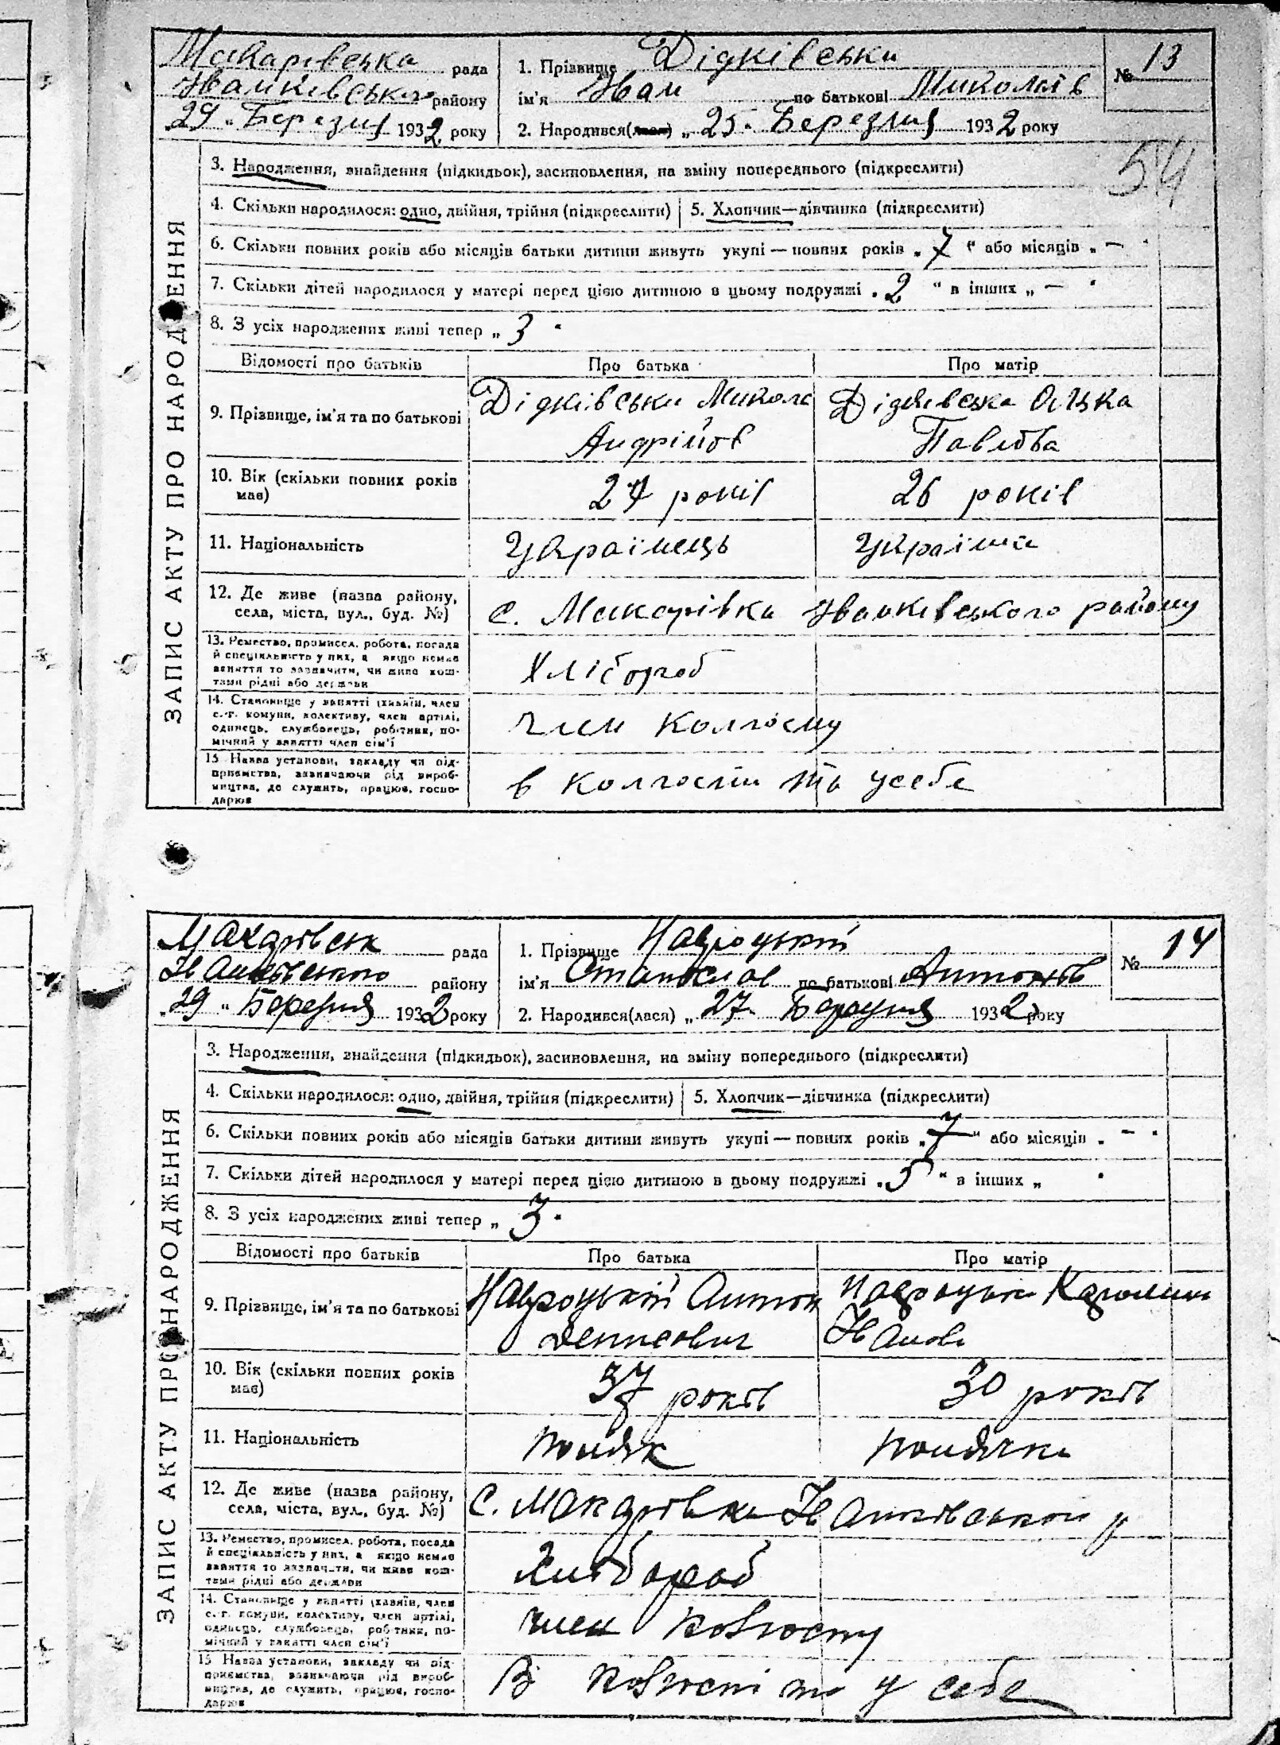 Макарівська рада
Іванківського району
29 „ Березня 1932 року
1. Прізвище Дідківськи
ім'я Іван по батькові Миколаїв
2. Народився(лася) „ 25 „ Березня 1932 року
№ 13
54
ЗАПИС АКТУ ПРО НАРОДЖЕННЯ
3. Народження, знайдення (підкидьок), засиновлення, на зміну попереднього (підкреслити)
4. Скільки народилося: одно, двійня, трійня (підкреслити) 5. Хлопчик—дівчинка (підкреслити)
6. Скільки повних років або місяців батьки дитини живуть укупі — повних років „ 7 “ або місяців „ —
7. Скільки дітей народилося у матері перед цією дитиною в цьому подружжі „ 2 “ в інших „ —
8. З усіх народжених живі тепер „ 3
Відомості про батьків Про батька Про матір
9. Прізвище, ім'я та по батькові Дідківськи Микола Дідківська Олька
Андрійов Павлова
10. Вік (скільки повних років має) 27 років 26 років
11. Національність Українець Українка
12. Де живе (назва району, села, міста, вул., буд. №) с. Макарівка Іванківського району
13. Ремество, промисел, робота, посада й спеціяльність у них, а якщо немає заняття то зазначити, чи живе коштами рідні або держави Хлібороб
14. Становище у занятті (хазяїн, член с.-г. комуни, колективу, член артілі, одинець, службовець, робітник, помічний у занятті член сім'ї член колгоспу
15 Назва установи, закладу чи підприємства, зазначаючи рід виробництва, де служить, працює, господарює в колгоспи та усебе
Макарівськ рада
Іванківського району
„ 29 „ Березня 1932 року
1. Прізвище Навроцький
ім'я Станіслав по батькові Антонов
2. Народився(лася) „ 27 Березня 1932 року
№ 14
ЗАПИС АКТУ ПРО НАРОДЖЕННЯ
3. Народження, знайдення (підкидьок), засиновлення, на зміну попереднього (підкреслити)
4. Скільки народилося: одно, двійня, трійня (підкреслити) 5. Хлопчик—дівчинка (підкреслити)
6. Скільки повних років або місяців батьки дитини живуть укупі — повних років „ 7 “ або місяців „ —
7. Скільки дітей народилося у матері перед цією дитиною в цьому подружжі „ 5 “ в інших „
8. З усіх народжених живі тепер „ 3
Відомості про батьків Про батька Про матір
9. Прізвище, ім'я та по батькові Навроцький Антон Навроцьки Каролина
Денисович Іванов
10. Вік (скільки повних років має) 37 років 30 років
11. Національність поляк полячка
12. Де живе (назва району, села, міста, вул., буд. №) С. Макарівка Іванківського р
13. Ремество, промисел, робота, посада й спеціяльність у них, а якщо немає заняття то зазначити, чи живе коштами рідні або держави Хлібороб
14. Становище у занятті (хазяїн, член с.-г. комуни, колективу, член артілі, одинець, службовець, робітник, помічний у занятті член сім'ї член ковгоспу
15 Назва установи, закладу чи підприємства, зазначаючи рід виробництва, де служить, працює, господарює В ковгоспі та у себе